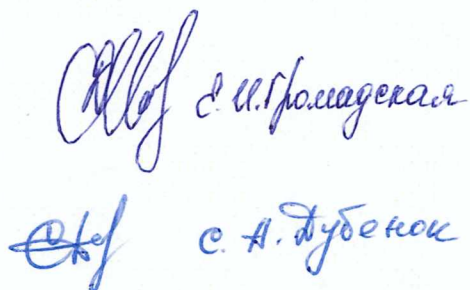 Е. И. Громадская
С. А. Дубенок